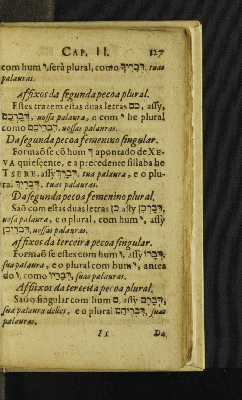 CAP. II. 127
com hum י, será plural, como דְּבָרֶיךָ, tuas
palauras.
Affixos da segunda pecoa plural.
Estes trazem estas duas letras כם, assy,
דְּבַרְכֶם, vossa palaura, e com י he plural
como דִּבְרֵיכֶם, vossas palauras.
Da segunda pecoa femenino singular.
Formaõ se cõ hum ך apontado de XE-
VA quiescente, e a precedente sillaba he
TSERE, assy דְּבָרֵךְ, tua palaura, e o plu-
ra. דְּבָרַיִךְ, tuas palauras.
Da segunda pecoa femenino plural,
Saõ com estas duas letras כן, assy דְּבַרְכֶן
vossa palaura, e o plural, com hum י, assy
דִּבְרֵיכֶן, vossas palauras.
Affixos da terceira pecoa singular.
Formaõ se estes com hum ו, assy דְּבָרוֹ,
sua palaura, e o plural com hum י, antes
do ו, como דְּבָרָיו, suas palauras.
Affixos da terceita pecoa plural.
Saõ o singular com hum ם, assy דְּבָרָם,
sua palaura delles, e o plural דִּבְרֵיהֶם, suas
palauras.
I 5 Da